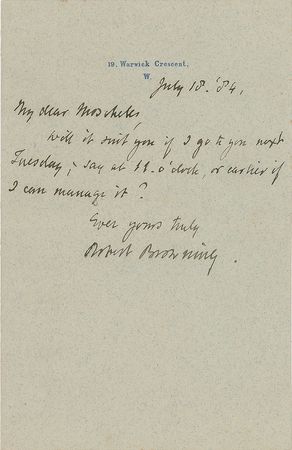 19. Warwick Crescent,
W.
July 18. '84.
My dear Moscheles,
Will it suit you if I go to you next
Tuesday, - say at 11. o'clock, or earlier if
I can manage it?
Ever yours truly
Robert Browning.